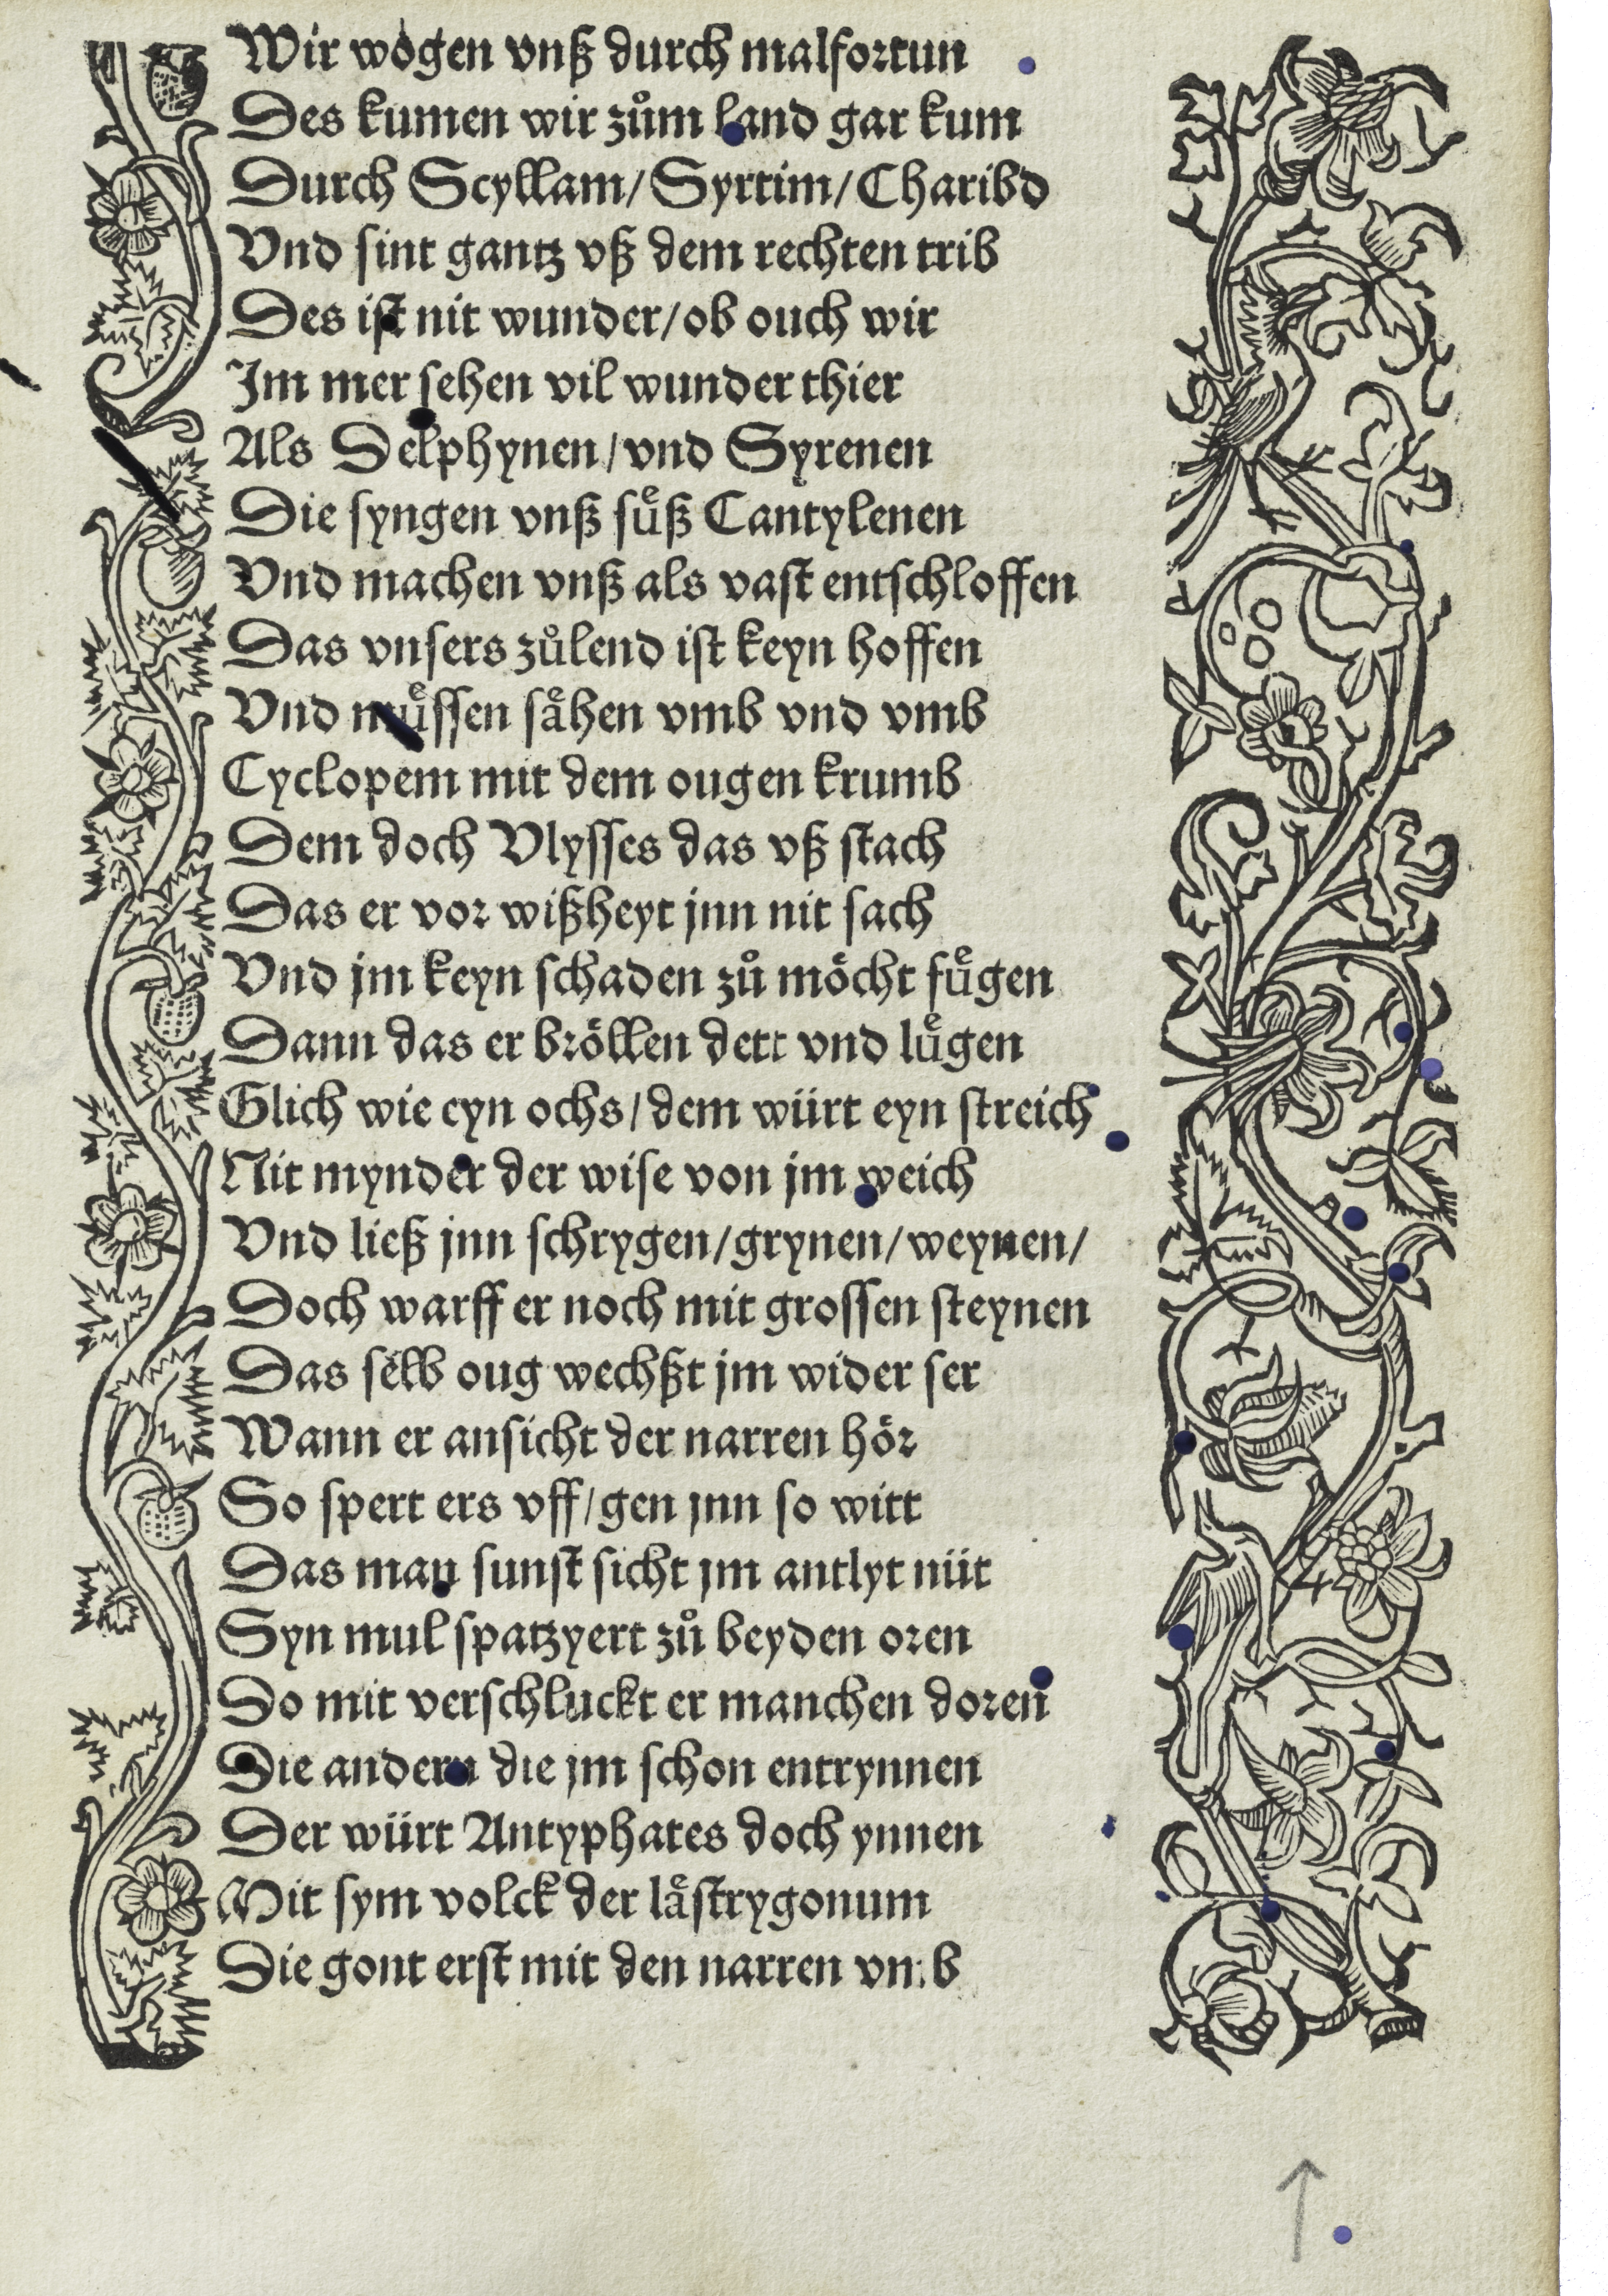 Wir wogen vnß durch malfortun
Des kumen wir zům land gar kum
Durch Scyllam/Syrtim/Charibd
Vnd sint gantz vß dem rechten trib
Des ist nit wunder/ob ouch wir
Im mer sehen vil wunder thier
Als Delphynen/vnd Syrenen
Die syngen vnß suͤß Cantylenen
Vnd machen vnß als vast entschloffen
Das vnsers zůlend ist keyn hoffen
Vnd muͤssen saͤhen vmb vnd vmb
Cyclopem mit dem ougen krumb
Dem doch Vlysses das vß stach
Das er vor wißheyt jnn nit sach
Vnd jm keyn schaden zů moͤcht fuͤgen
Dann das er broͤllen dett vnd luͤgen
Glich wie eyn ochs/dem würt eyn streich
Nit mynder der wise von jm weich
Vnd ließ jnn schrygen/grynen/weynen/
Doch warff er noch mit grossen steynen
Das selb oug wechßt jm wider ser
Wann er ansicht der narren hoͤr
So spert ers vff/gen jnn so witt
Das man sunst sicht jm antlyt nüt
Syn mul spatzyert zů beyden oren
Do mit verschluckt er manchen doren
Die andern die jm schon entrynnen
Der würt Antyphates doch ynnen
Mit sym volck der laͤstrygonum
Die gont erst mit den narren vmb